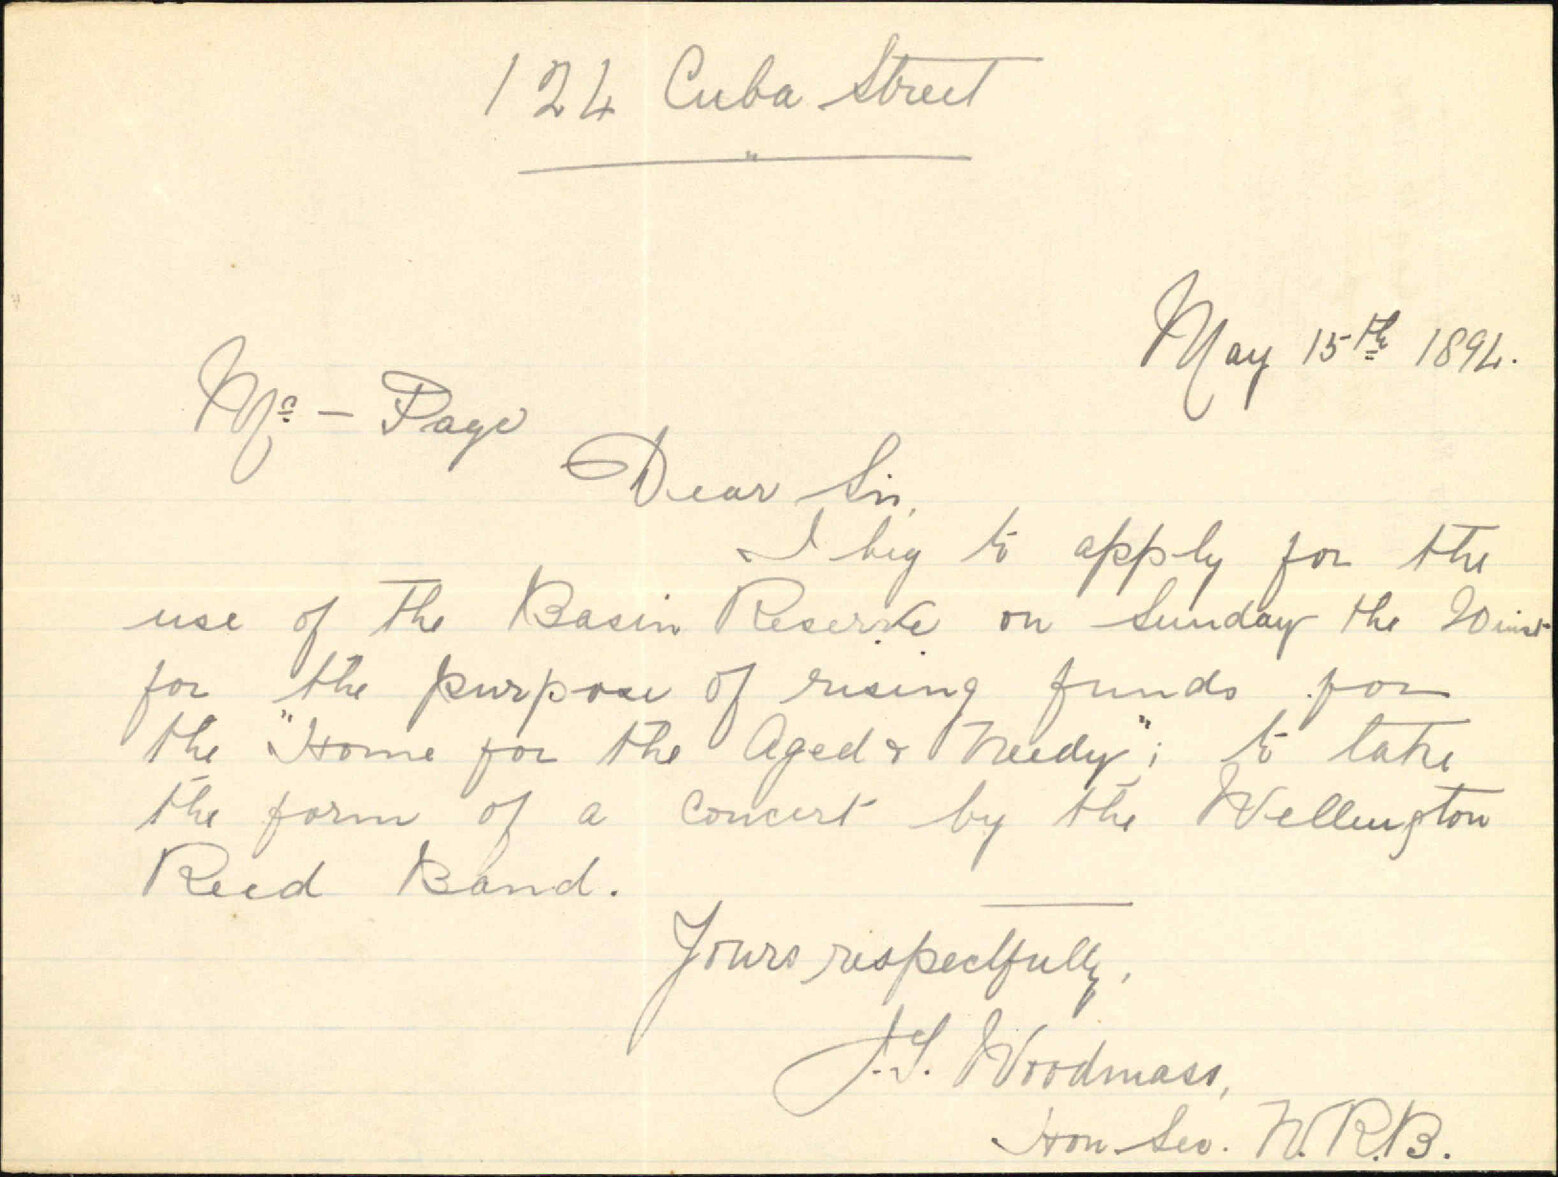 124 Cuba Street
May 15th 1894.
Mr - Page
Dear Sir,
I beg to apply for the
use of the Basin Reserve on Sunday the 20 inst
for the purpose of rising funds for
the "Home for the Aged & Needy"; to take
the form of a concert by the Wellington
Reed Band.
Yours respectfully,
J.S. Woodmass,
Hon Sec. W.R.B.